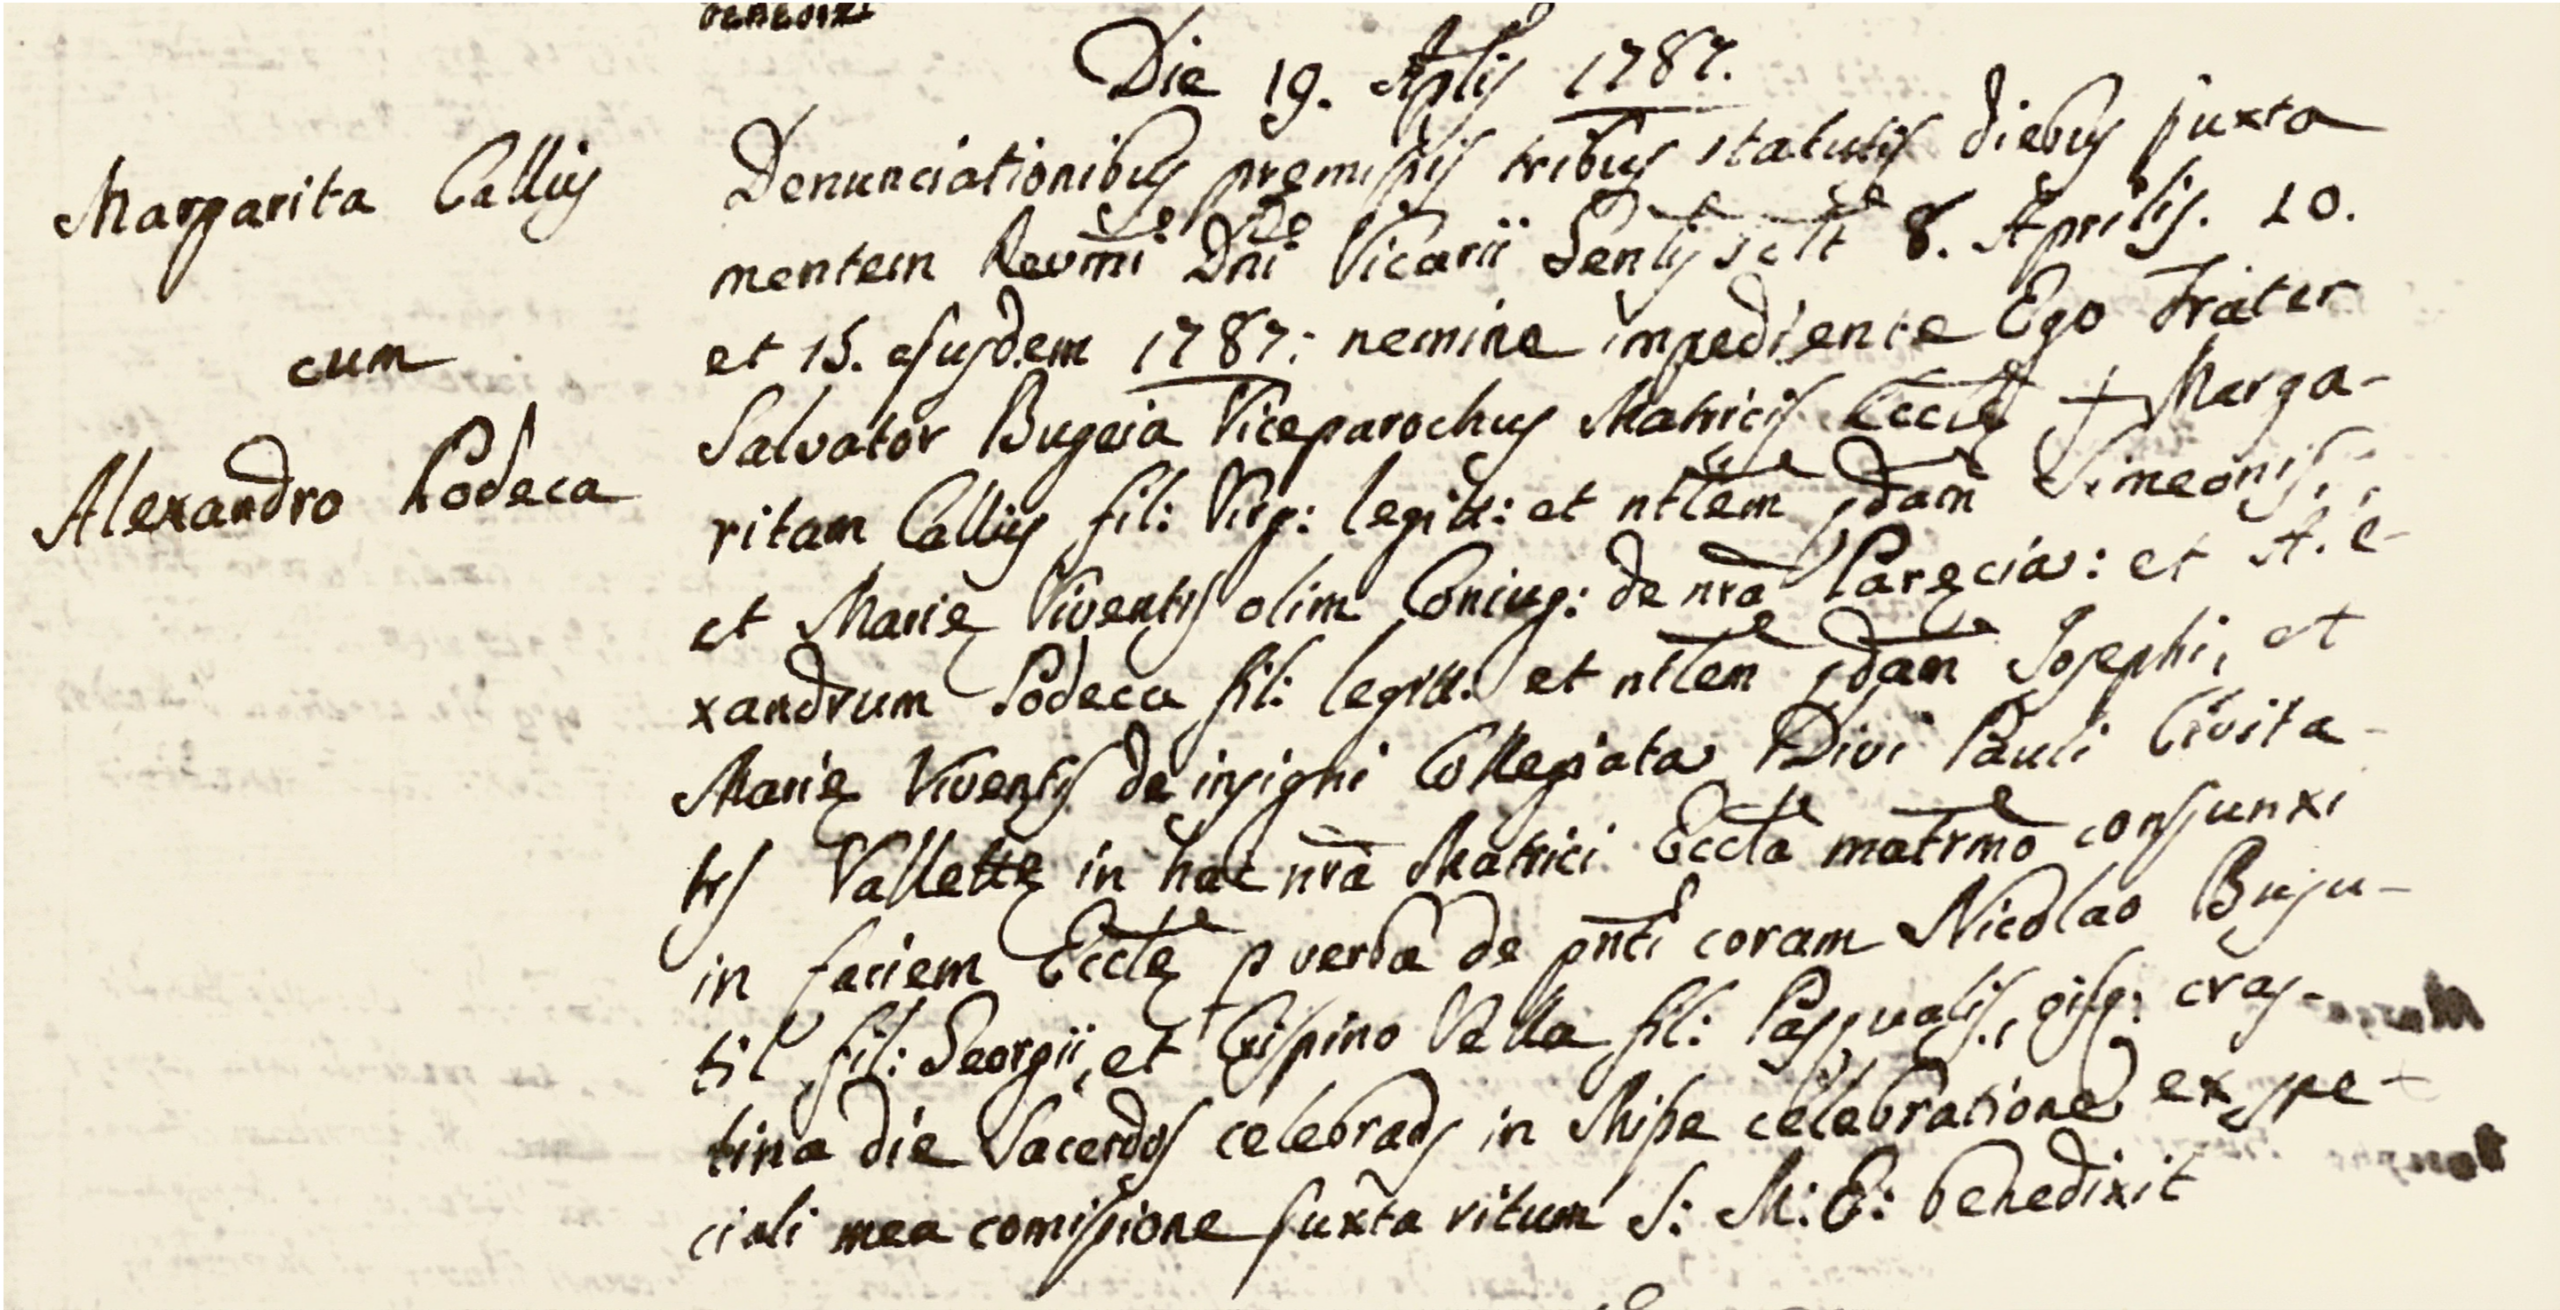 benedixi
Die 19. Aplis 1787.
Margarita Callus
cum
Alexandro Podeca
Denunciationibus premissis tribus statutis diebus juxta
mentem Revmi Dni Vicarii Genlis scilt 8. Aprilis. 10.
et 15. ejusdem 1787: nemine impediente Ego Frater
Salvator Bugeia Viceparochus Matricis Eccle + Marga-
ritam Callus fil: Virg: legitt: et ntlem qdam Simeonis,
et Marię Viventis olim Coniug: de nra Paręcia: et Ale-
xandrum Podeca fil: legitt: et ntlem qdam Josephi, et
Marię Viventis de insigni Collegiata Divi Pauli Civita-
tis Vallettę in hac nra Matrici Eccla matrmo conjunxi
in faciem Ecclę p verba de pnti coram Nicolao Buju-
til fil: Georgii, et Crispino Vella fil: Pasqualis, qisq: cras-
tina die Sacerdos celebrans in Misse celebratione ex spe-
ciali mea comissione juxta ritum S: M: E: benedixit